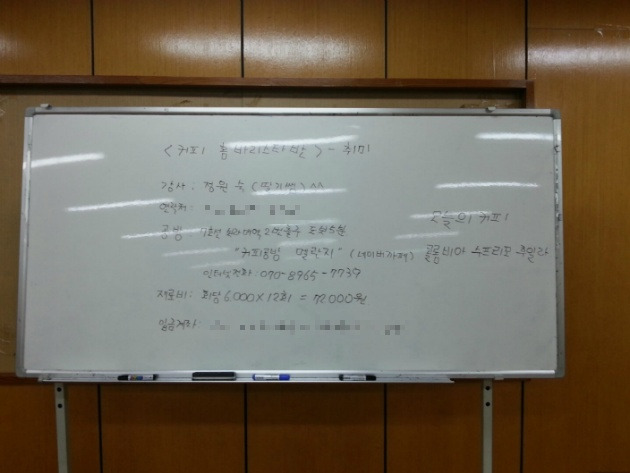 <커피 홈바리스타반> - 취미
강사 : 정원 ^^
연락처 :
공방 : 7호선 2번출구 도보5분
"커피공방 멜랑지" (네이버카페)
인터넷전화 : 070-8965-7739
재료비 : 회당 6,000 X 12회 = 72,000원
입금계좌 :
오늘의 커피!
콜롬비아 수프리모 후일라